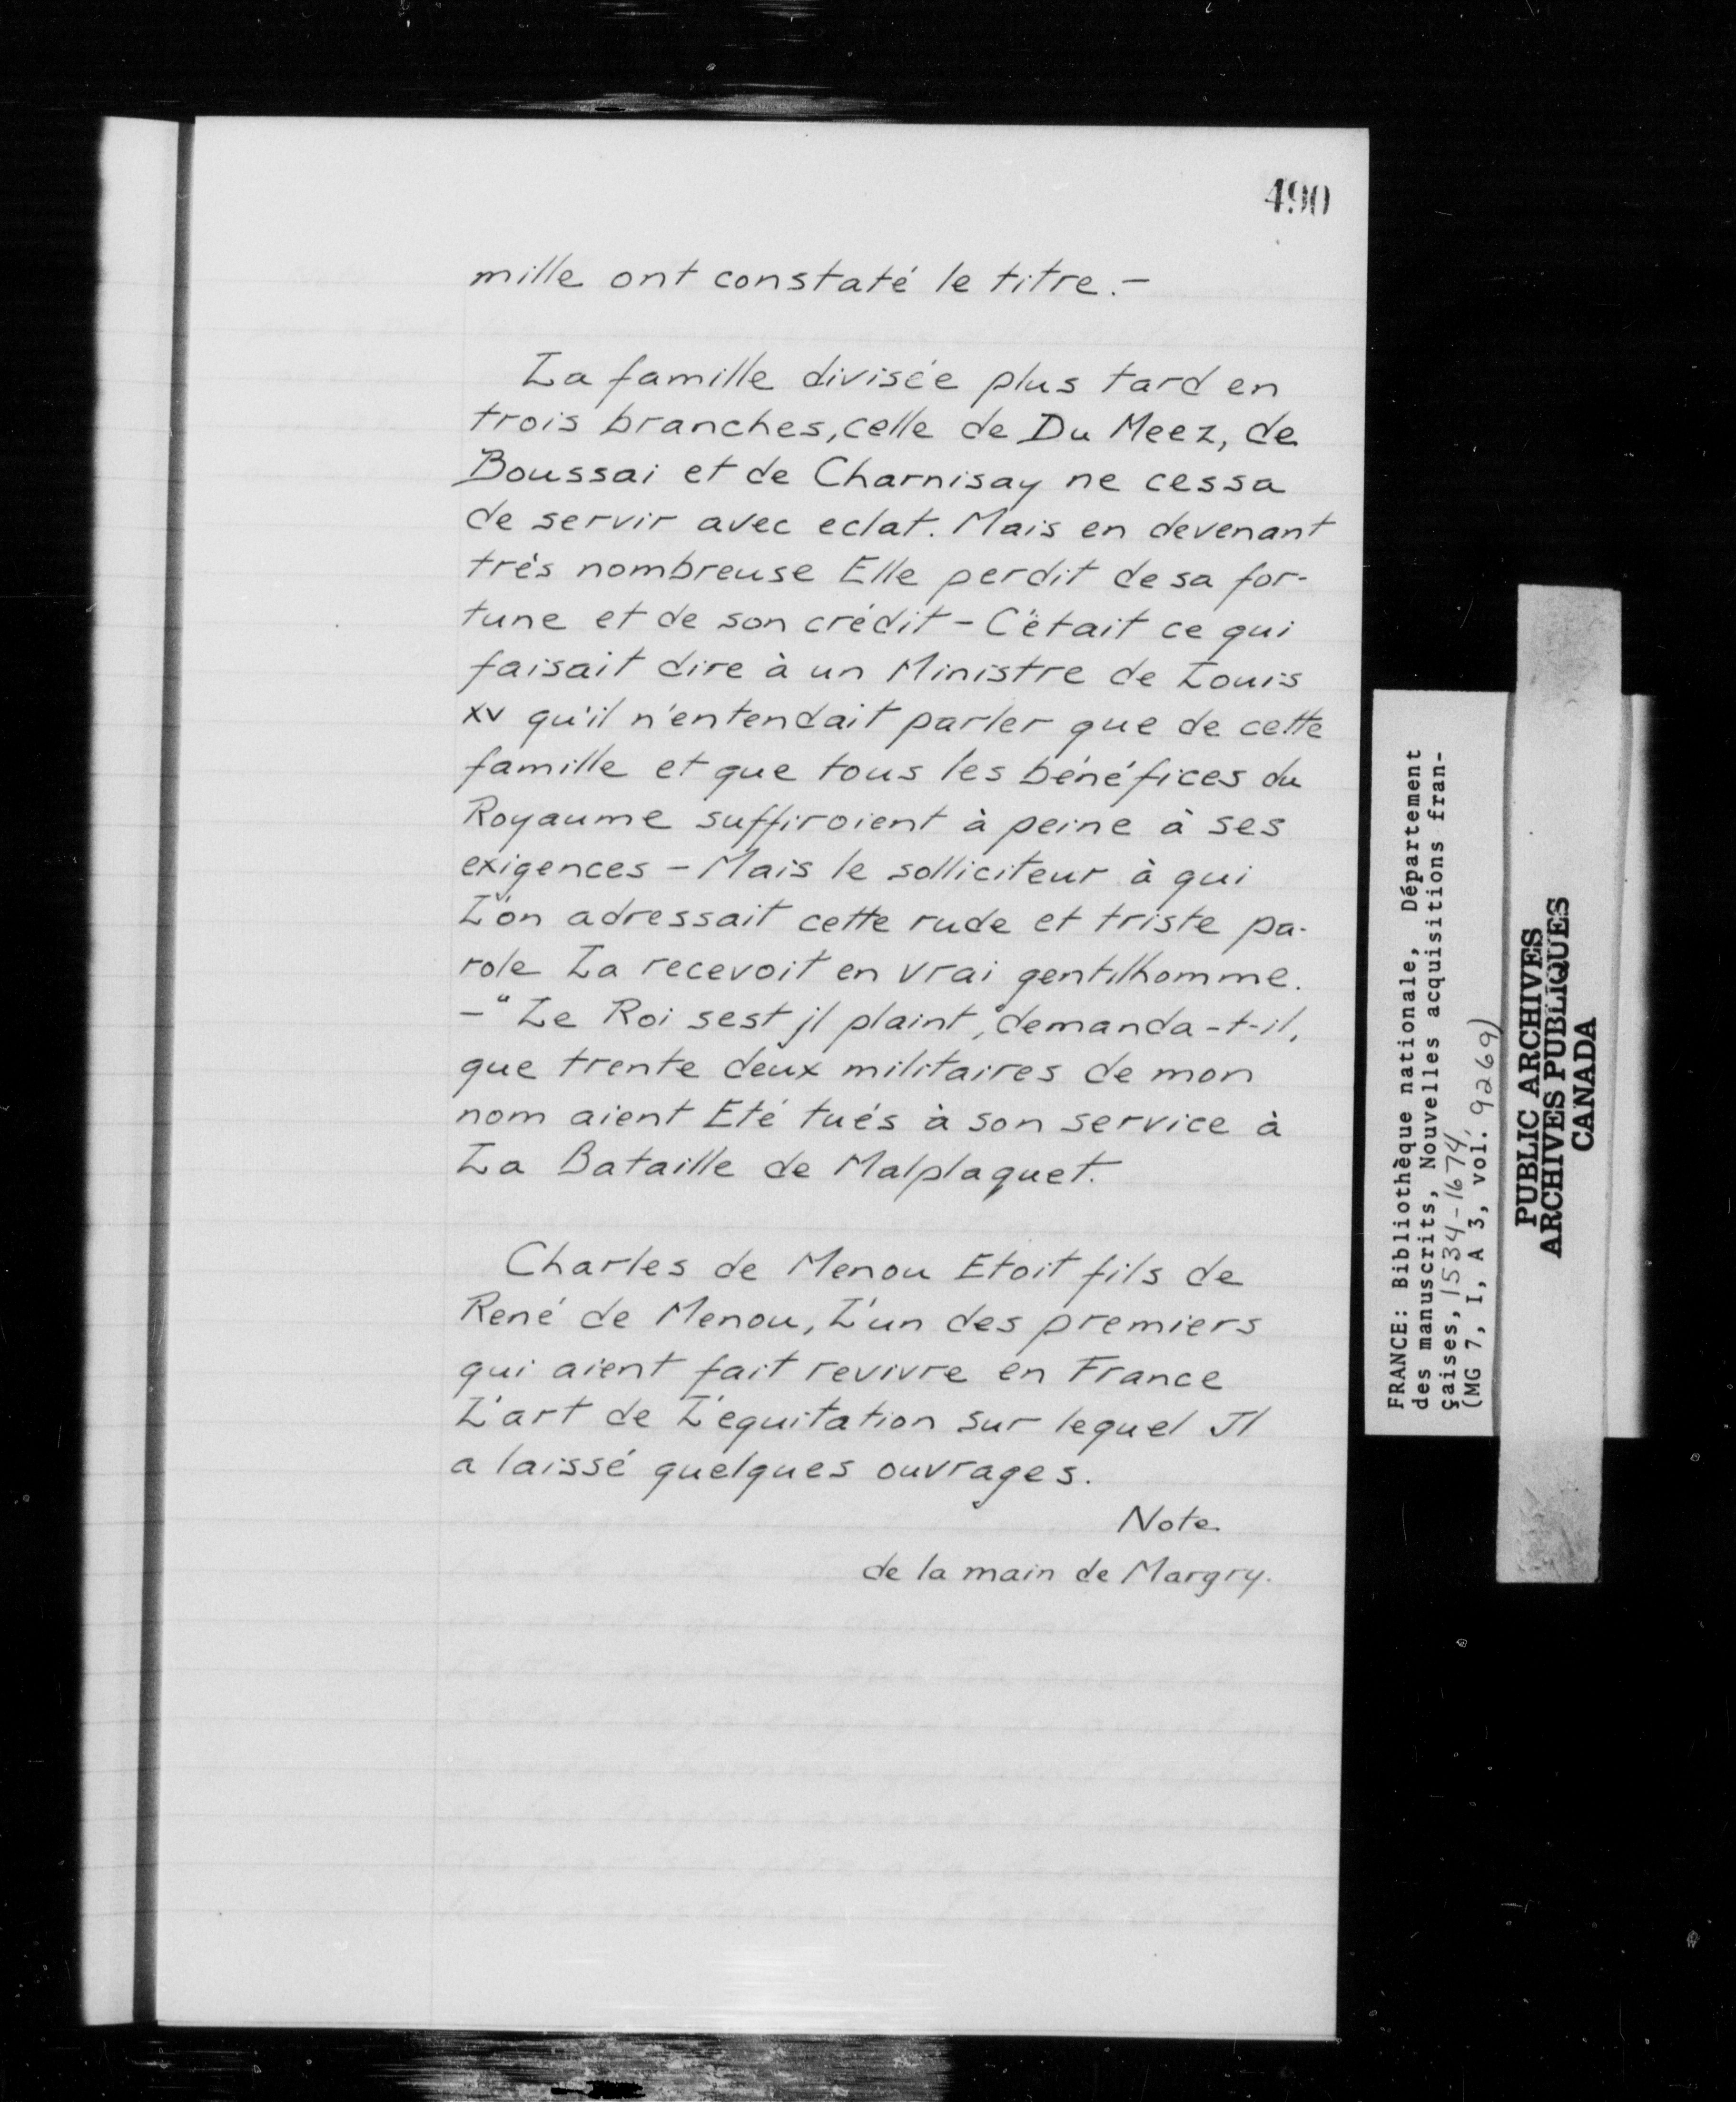 490
mille ont constaté le titre.-
La famille divisée plus tard en
trois branches, celle de Du Meez, de
Boussai et de Charnisay ne cessa
de servir avec eclat. Mais en devenant
très nombreuse Elle perdit de sa for-
tune et de son crédit - C'était ce qui
faisait dire à un Ministre de Louis
XV qu'il n'entendait parler que de cette
famille et que tous les bénéfices du
Royaume suffiroient à peine à ses
exigences - Mais le solliciteur à qui
L'on adressait cette rude et triste pa-
role La recevoit en vrai gentilhomme.
- "Le Roi sest jl plaint," demanda-t-il,
que trente deux militaires de mon
nom aient Eté tués à son service à
La Bataille de Malplaquet.
Charles de Menou Etoit fils de
René de Menou, L'un des premiers
qui aient fait revivre en France
L'art de L'equitation sur lequel Jl
a laissé quelques ouvrages.
Note
de la main de Margry.
FRANCE: Bibliothèque nationale, Département
des manuscrits, Nouvelles acquisitions fran-
çaises, 1534-1674,
(MG 7, I, A 3, vol. 9269)
PUBLIC ARCHIVES
ARCHIVES PUBLIQUES
CANADA